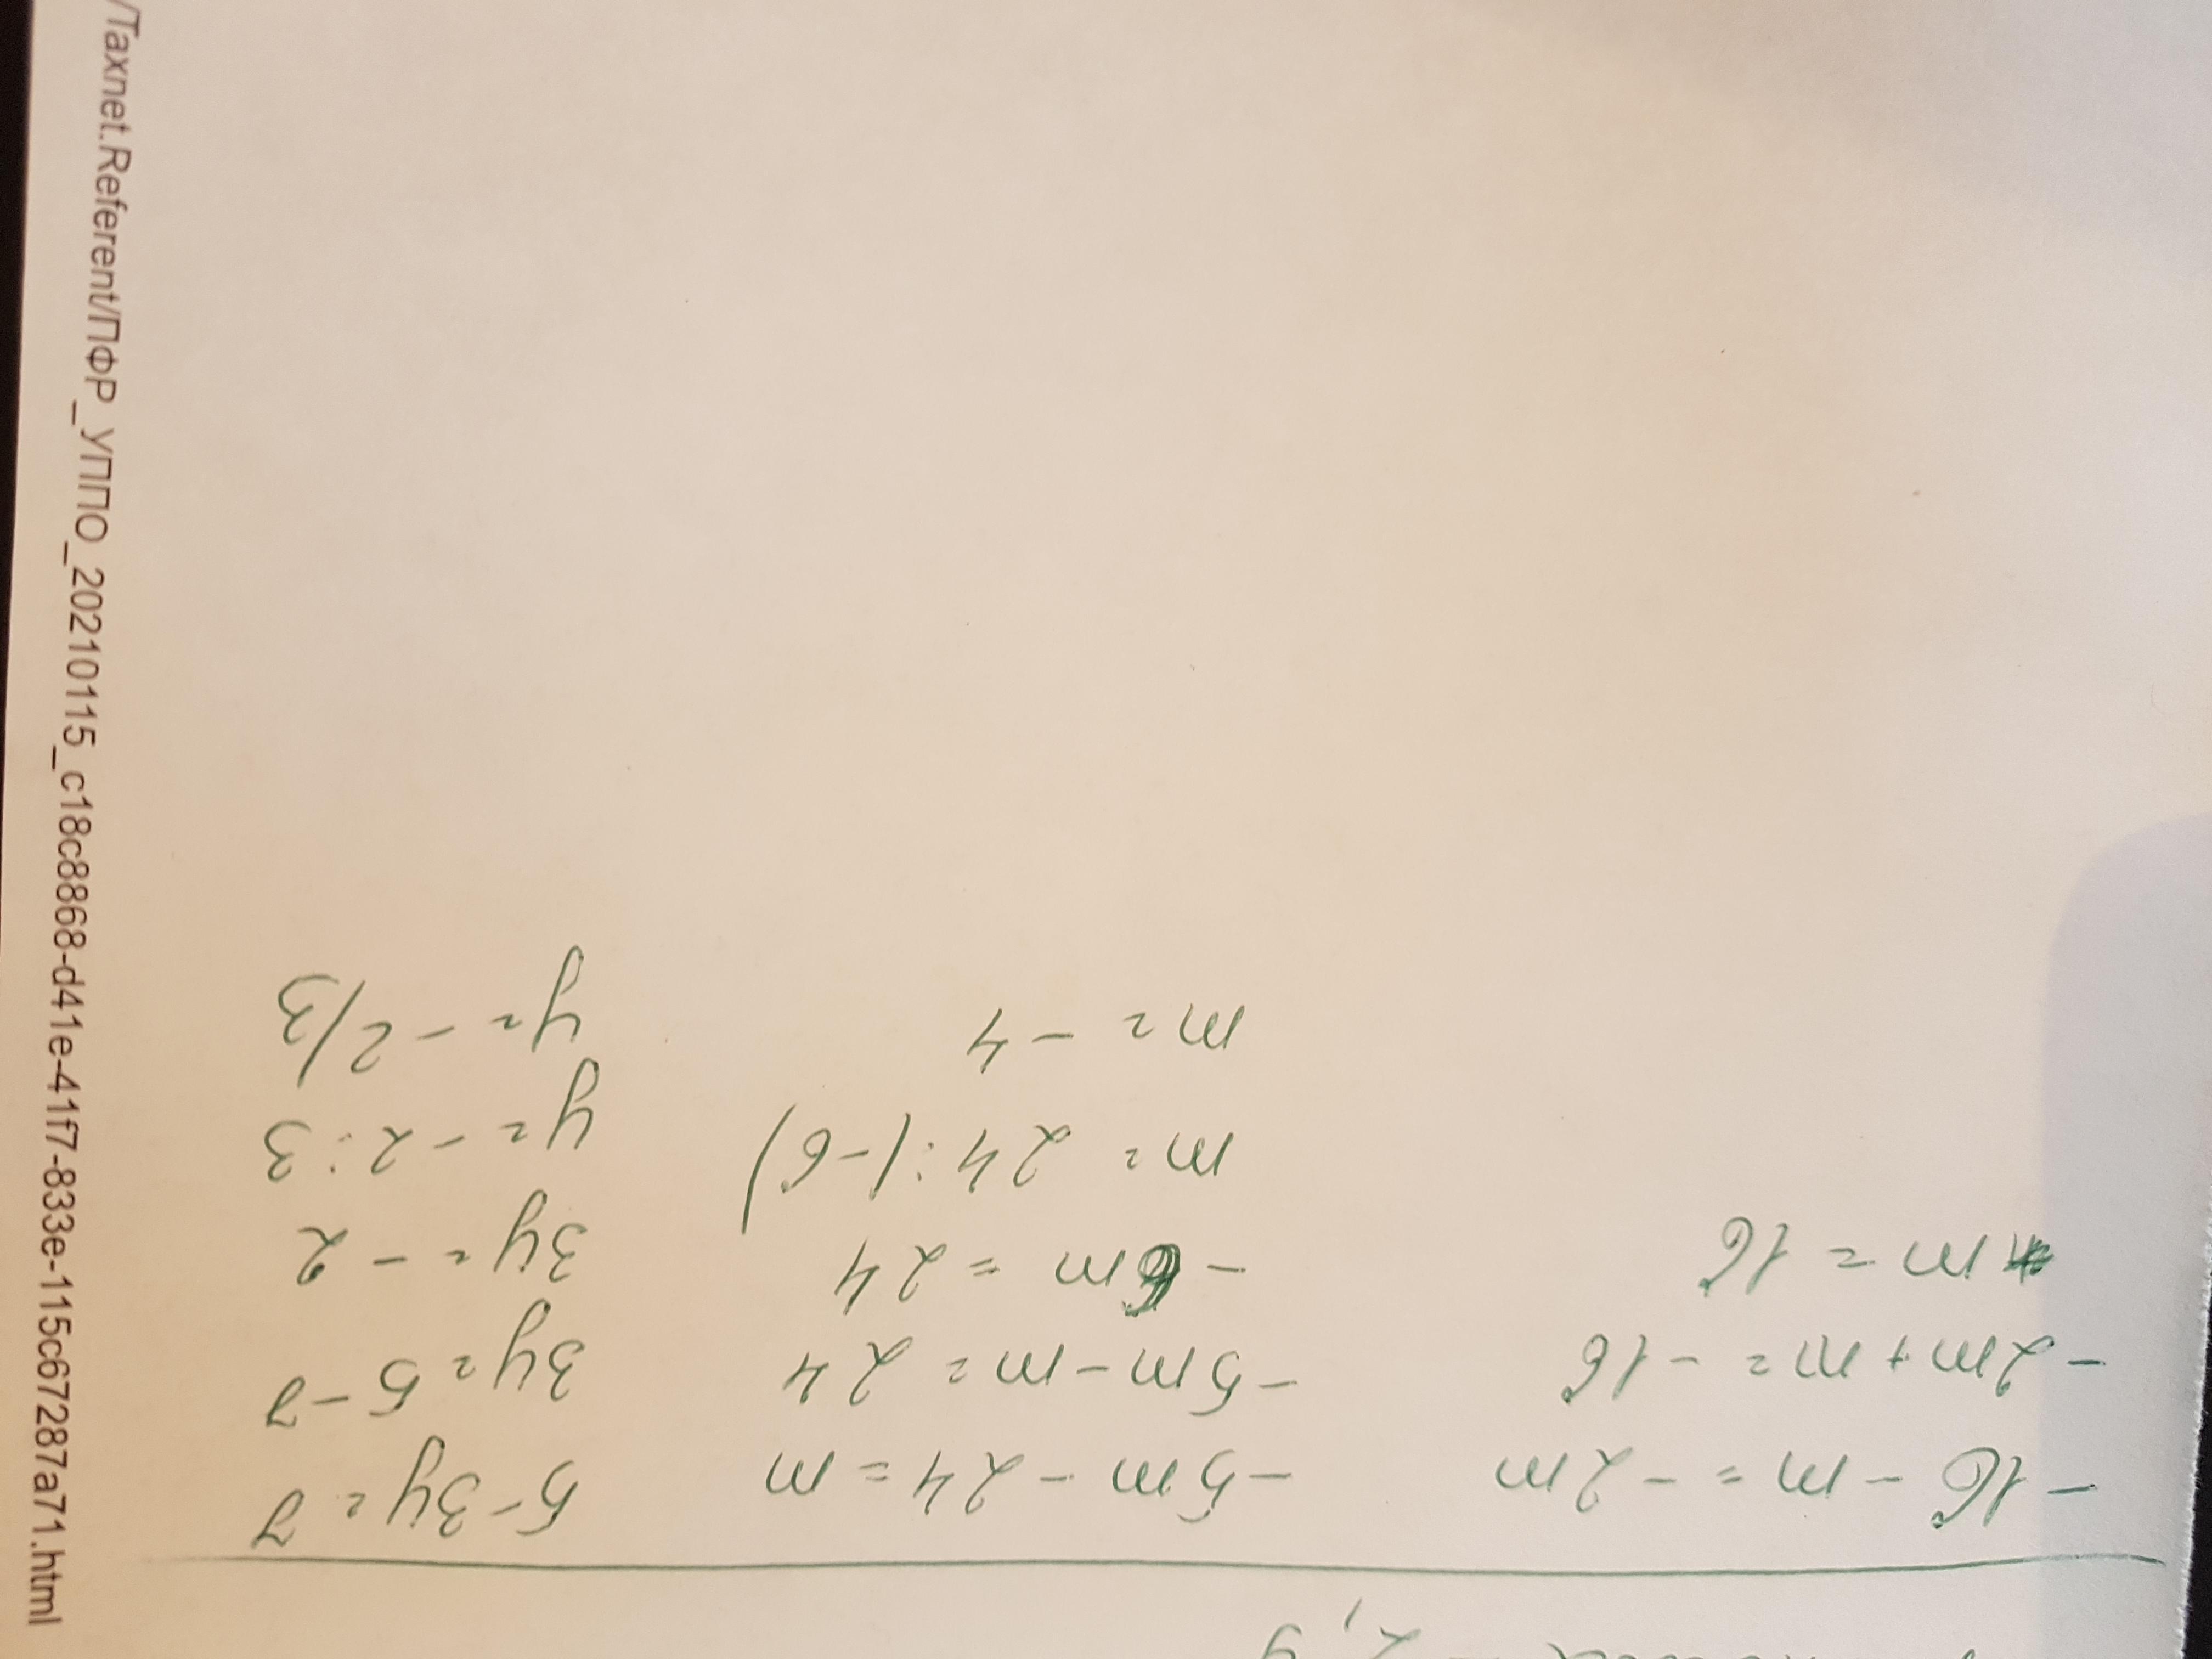 -16 - m = -2m
-2m + m = -16
m = 16
-5m - 24 = m
-5m - m = 24
-6m = 24
m = 24 : (-6)
m = -4
5 - 3y = 7
3y = 5 - 7
3y = -2
y = -2 : 3
y = -2/3
/Taxnet.Referent/ПФР_УППО_20210115_c18c8868-d41e-41f7-833e-115c67287a71.html